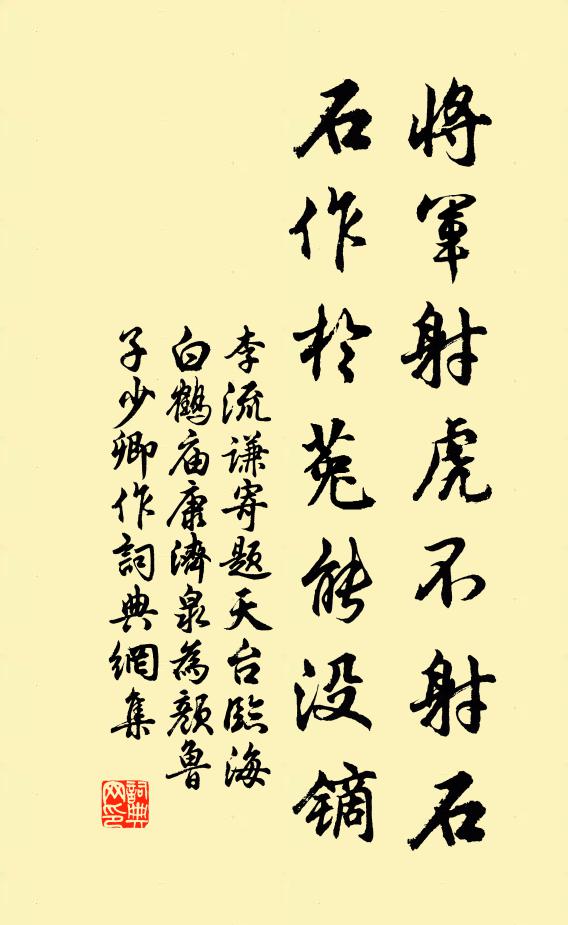 将軍射虎不射石
石作於菟能没鏑
李流謙寄題天台臨海
白鶴庙康濟泉為顔魯
子少卿作詞典網集
詞典
网印